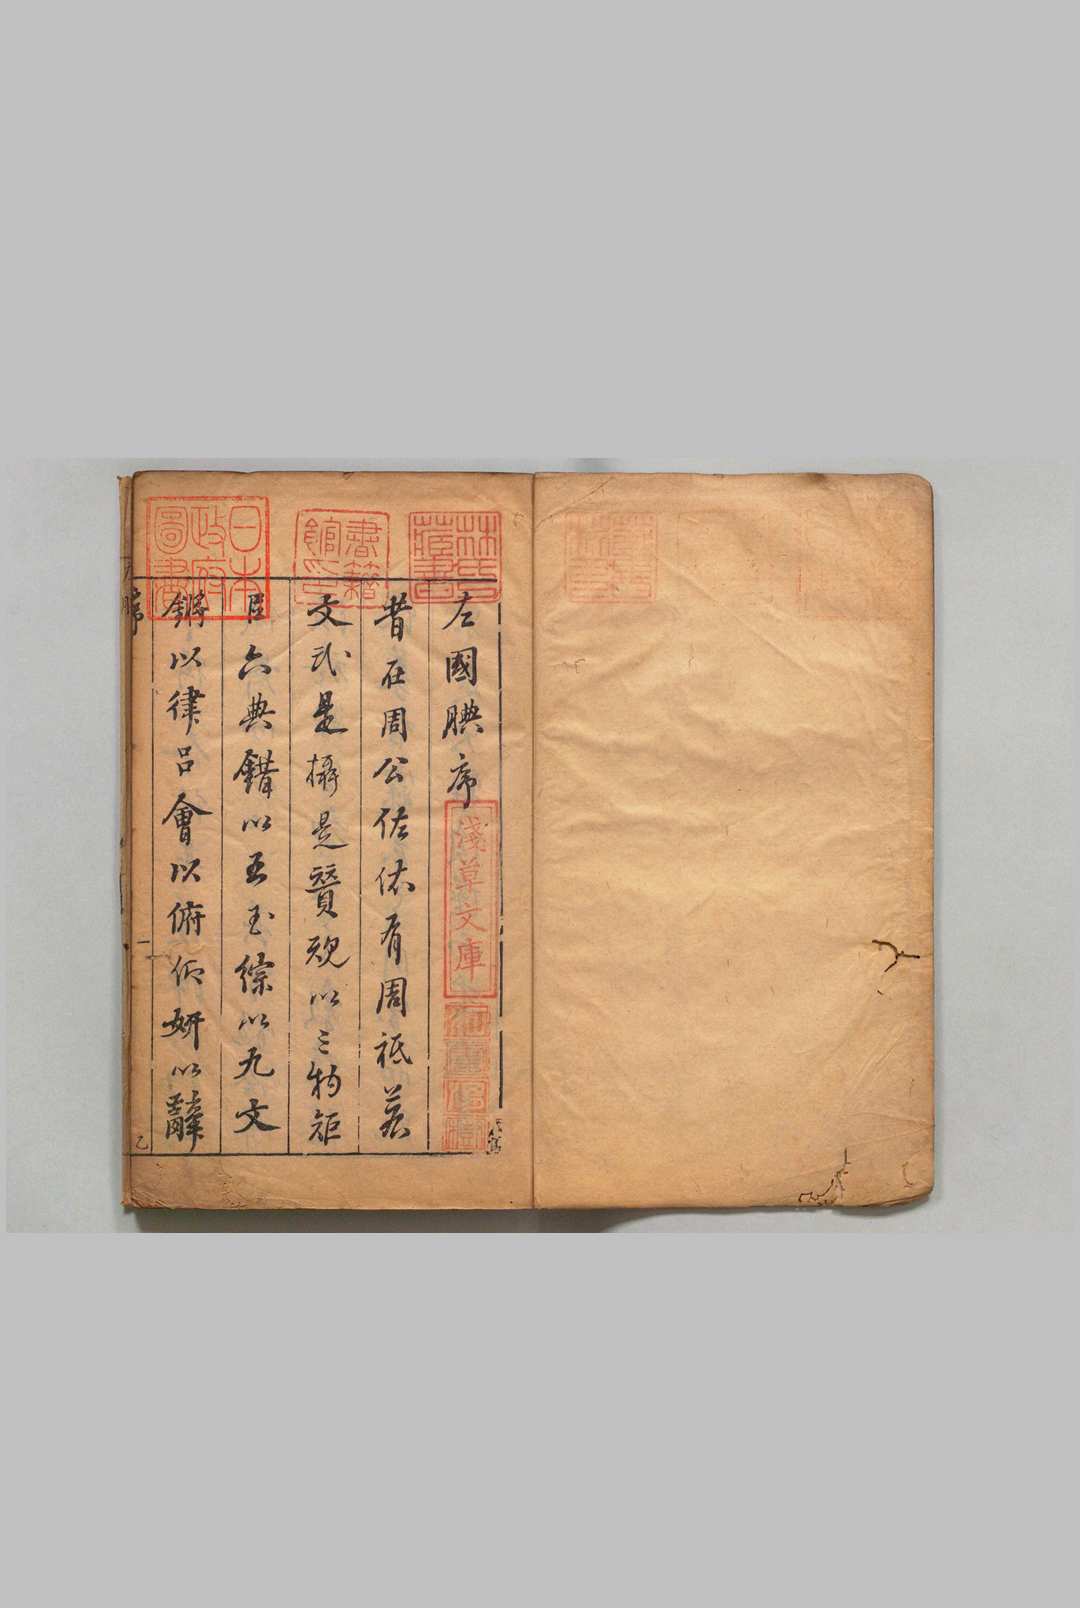 左國腴序
昔在周公佐依有周祗若
文武是攝是贊覛以三物矩
臣六典錯以五玉綜以九文
鎛以律呂會以俯仰妍以辭
林氏藏書
書籍館印
日本政府圖書
淺草文庫
序
一